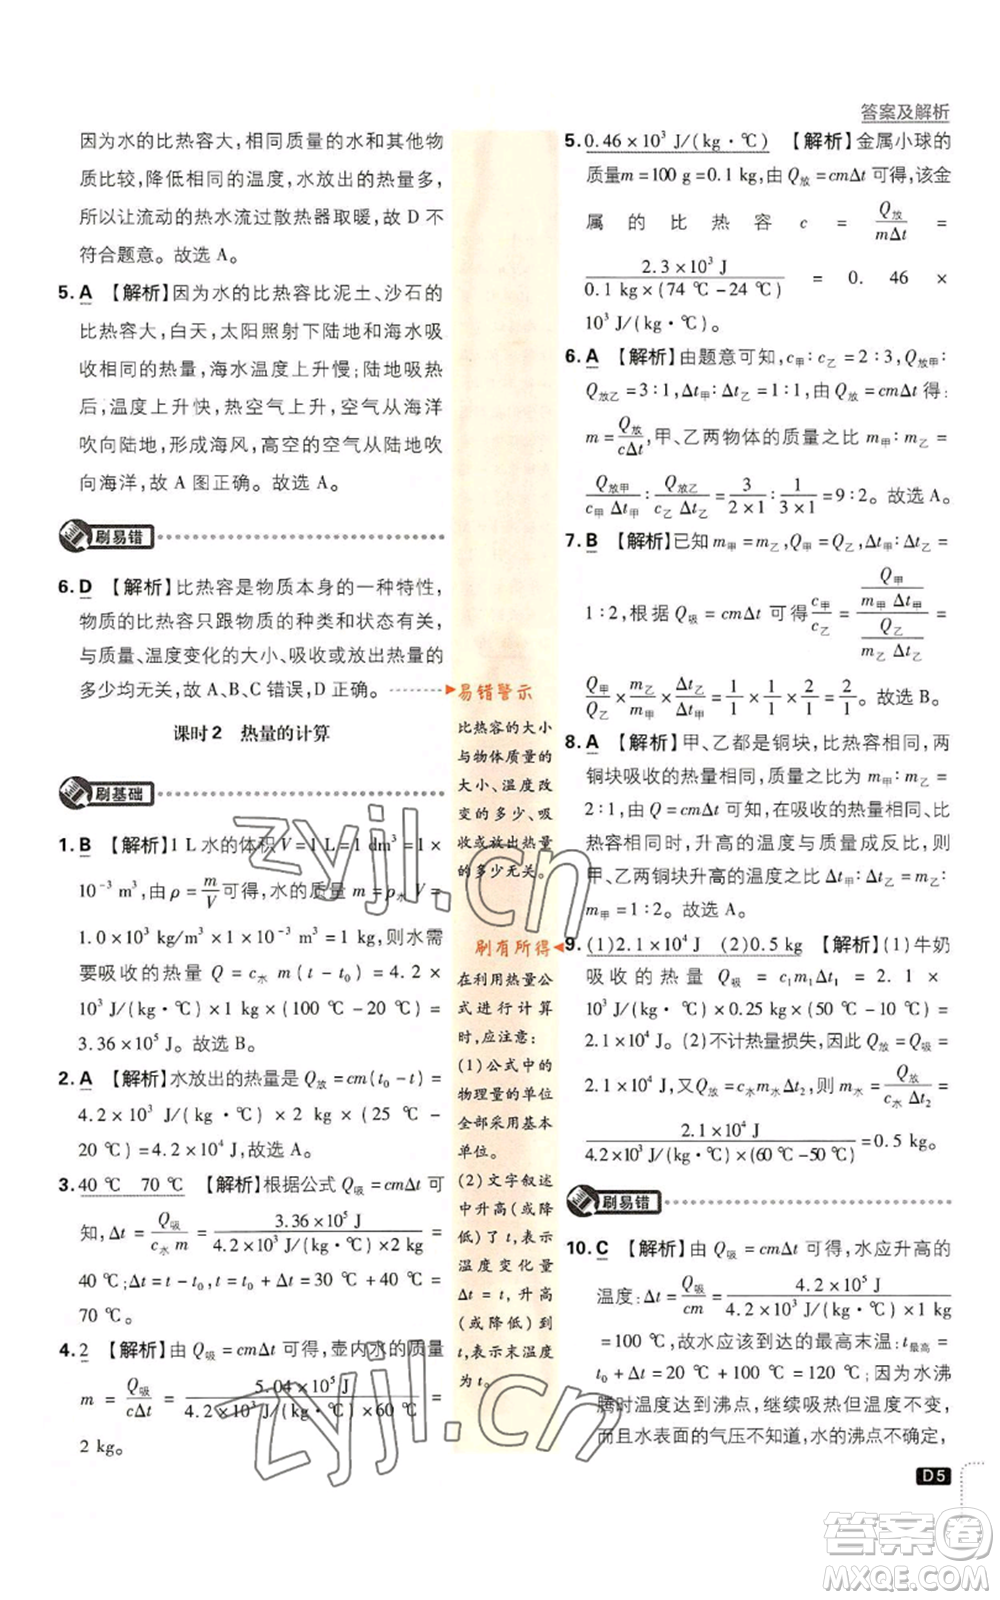 答案及解析
因为水的比热容大，相同质量的水和其他物
质比较，降低相同的温度，水放出的热量多，
所以让流动的热水流过散热器取暖，故 D 不
符合题意。故选 A。
5. A 【解析】因为水的比热容比泥土、沙石的
比热容大，白天，太阳照射下陆地和海水吸
收热量，海水温度上升慢；陆地吸热
后，温度上升快，热空气上升，风从海洋
吹向陆地，形成海风，高空的空气从陆地吹
向海洋，故 A 图正确。故选 A。
刷易错
6. D 【解析】比热容是物质本身的一种特性，
物质的比热容只跟物质的种类和状态有关，
与质量、温度变化的大小、吸收或放出热量的
多少均无关，故 A、B、C 错误，D 正确。
课时2 热量的计算
刷基础
1. B 【解析】1 L 水的体积 V = 1 L = 1 dm³ = 1 ×
10⁻³ m³，由 ρ = m/V 可得，水的质量 m = ρV =
1.0×10³ kg/m³×1×10⁻³ m³ = 1 kg，则水需
要吸收的热量 Q = c水 m(t－t₀) = 4.2 ×
10³ J/(kg·℃)×1 kg×(100 ℃－20 ℃) =
3.36×10⁵ J。故选 B。
2. A 【解析】水放出的热量是 Q放 = cm(t₀－t) =
4.2×10³ J/(kg·℃) × 2 kg × (25 ℃－
20 ℃) = 4.2×10⁴ J，故选 A。
3. 40 ℃ 70 ℃ 【解析】根据公式 Q吸 = cmΔt 可
知，Δt = Q吸/(c水 m) = 3.36×10⁵ J/(4.2×10³ J/(kg·℃)×2 kg) =
40 ℃；Δt = t－t₀，t = t₀+Δt = 30 ℃+40 ℃ =
70 ℃。
4. 2 【解析】由 Q吸 = cmΔt 可得，壶内水的质量
m = Q吸/(cΔt) = 5.04×10⁵ J/(4.2×10³ J/(kg·℃)×60 ℃) =
2 kg。
易错警示
比热容的大小
与物体质量的
大小、温度改
变的多少、吸
收或放出热量
的多少无关。
刷有所得
在利用热量公
式进行计算
时，应注意：
(1)公式中的
物理量的单位
全部采用基本
单位。
(2)文字叙述
中升高(或降
低)了 t，表示
温度变化量
Δt = t，升高
(或降低)到
t，表示末温度
为 t。
5. 0.46×10³ J/(kg·℃) 【解析】金属小球的
质量m = 100 g = 0.1 kg，由 Q放 = cmΔt 可得，该金
属的比热容 c = Q放/(mΔt) =
2.3×10³ J/(0.1 kg×(74 ℃－24 ℃)) = 0.46 ×
10³ J/(kg·℃)。
6. A 【解析】由题意可知，c甲∶c乙 = 2∶3，Q放甲∶
Q放乙 = 3∶1，Δt甲∶Δt乙 = 1∶1，由 Q放 = cmΔt 得：
m = Q放/(cΔt)，甲、乙两物体的质量之比 m甲∶m乙 =
Q放甲/(c甲 Δt甲)∶Q放乙/(c乙 Δt乙) = 3/(2×1)∶1/(3×1) = 9∶2。故选 A。
7. B 【解析】已知 m甲 = m乙，Q甲 = Q乙，Δt甲∶Δt乙 =
1∶2，根据 Q吸 = cmΔt 可得 c甲/c乙 = (Q甲/(m甲 Δt甲))/(Q乙/(m乙 Δt乙)) =
Q甲/Q乙 × m乙/m甲 × Δt乙/Δt甲 = 1/1 × 1/1 × 2/1 = 2/1。故选 B。
8. A 【解析】甲、乙都是铜块，比热容相同，两
铜块吸收的热量相同，质量之比为 m甲∶m乙 =
2∶1，由 Q = cmΔt 可知，在吸收的热量、
比热容相同时，升高的温度与质量成反比，则
甲、乙两铜块升高的温度之比 Δt甲∶Δt乙 = m乙∶
m甲 = 1∶2。故选 A。
9. (1)2.1×10⁴ J (2)0.5 kg 【解析】(1)牛奶
吸收的热量 Q吸 = c₁m₁Δt₁ = 2.1 ×
10³ J/(kg·℃)×0.25 kg×(50 ℃－10 ℃) =
2.1×10⁴ J。(2)不计热量损失，因此 Q放 = Q吸 =
2.1×10⁴ J，又Q放 = c水m水Δt₂，则 m水 = Q放/(c水 Δt₂) =
2.1×10⁴ J/(4.2×10³ J/(kg·℃)×(60 ℃－50 ℃)) = 0.5 kg。
刷易错
10. C 【解析】由 Q吸 = cmΔt 可得，水应升高的
温度：Δt = Q吸/(cm) = 4.2×10⁵ J/(4.2×10³ J/(kg·℃)×1 kg)
= 100 ℃，故水应该到达的最高末温：t最高 =
t₀+Δt = 20 ℃+100 ℃ = 120 ℃；因为水沸
腾时温度达到沸点，继续吸热但温度不变，
而且水表面的气压不知道，水的沸点不确定，
D5
zyjl.cn
zyjl.cn
答案卷
MXQE.COM